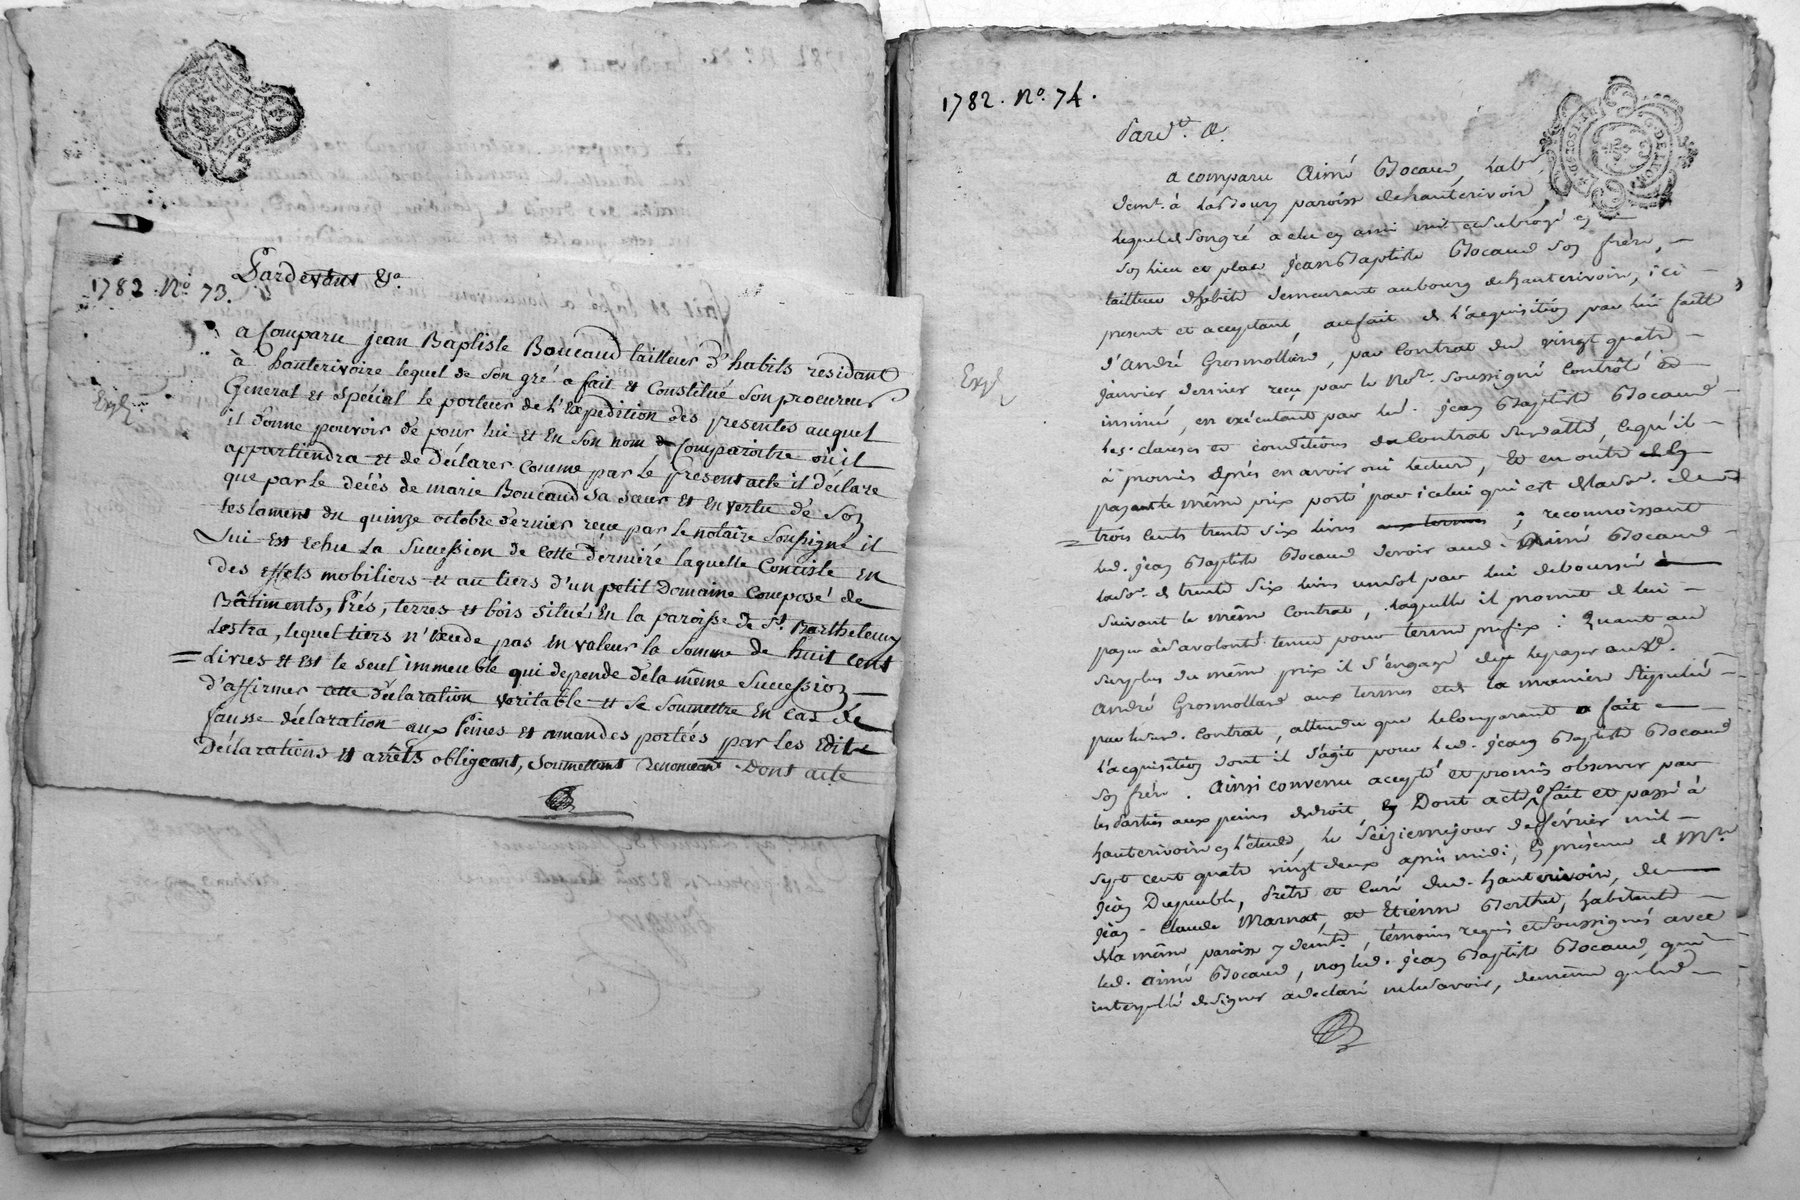 1782. No. 73.
Pardevant &a.
Exp
a Comparu jean Baptiste Boucaud tailleur d'habits residant
à hauterivoire lequel de son gré a fait et Constitué son procureur
General et spécial le porteur de l'Expédition des presentes auquel
il donne pouvoir de pour lui et En son nom Comparoitre où il
appartiendra et de déclarer comme par le present acte il déclare
que par le décés de marie Boucaud sa sœur et En vertu de son
testament du quinze octobre dernier recu par le notaire soussigné il
Lui Est Echu La Succession de cette derniére laquelle Consiste En
des effets mobiliers et au tiers d'un petit Domaine Composé de
Bâtiments, Prés, terres et bois situé En la paroisse de St. Barthelemy
Lestra, lequel tiers n'Excede pas En valeur la somme de huit cent
Livres et Est le seul immeuble qui depende de la même Succession
d'affirmer cette déclaration veritable et se soumettre En cas de
fausse déclaration aux Peines et amandes portées par les Edits
Déclarations et arrêts obligeant, soumettant Renonceant Dont acte
1782. No. 74.
Pardt. &.
Exp
a comparu Aimé Bocaud, labr.
demt. à paroisse de hauterivoir
lequel de son gré a elu en ami mis et subrogé en
son lieu et place Jean Baptiste Bocaud son frère,
tailleur d'habits demeurant au bourg de hauterivoir, ici
present et acceptant, au fait de l'acquisition par lui faitte
d'André Grosmollard, par Contrat du vingt quatre
janvier dernier reçu par le Nore. soussigné Contrôlé et
insinué, en exécutant par led. jean Baptiste Bocaud
les clauses et conditions du Contrat susdatté, ce qu'il
à promis après en avoir oui lecture, Et en outre
payant le même prix porté par icelui qui est de la so. de
trois cents trente six livres ; reconnoissant
led. jean Baptiste Bocaud devoir aud. Aimé Bocaud
la so. de trente six livres un sol par lui deboursé
suivant le même Contrat, laquelle il promet de lui
payer à sa volonté tenue pour terme prefix : Quant au
surplus du même prix il s'engage de le payer aud.
André Grosmollard aux termes et de la maniere stipulée
par led. Contrat, attendu que le Comparant a fait
l'acquisition dont il s'agit pour led. jean Baptiste Bocaud
son frère. Ainsi convenu accepté et promis observer par
les Parties aux peines de droit Dont acte fait et passé à
hauterivoire en l'étude, le seizieme jour de février mil
sept cent quatre vingt deux après midi, En présence de Mre.
jean Dupeuble, Prêtre et Curé dud. hauterivoire, de
jean-Claude Marnat, et Etienne Berthet, habitants
de la même paroisse y demts., témoins requis et soussignés avec
led. Aimé Bocaud, non led. jean Baptiste Bocaud, qui
interpellé de signer a declaré ne le savoir, de même que led.